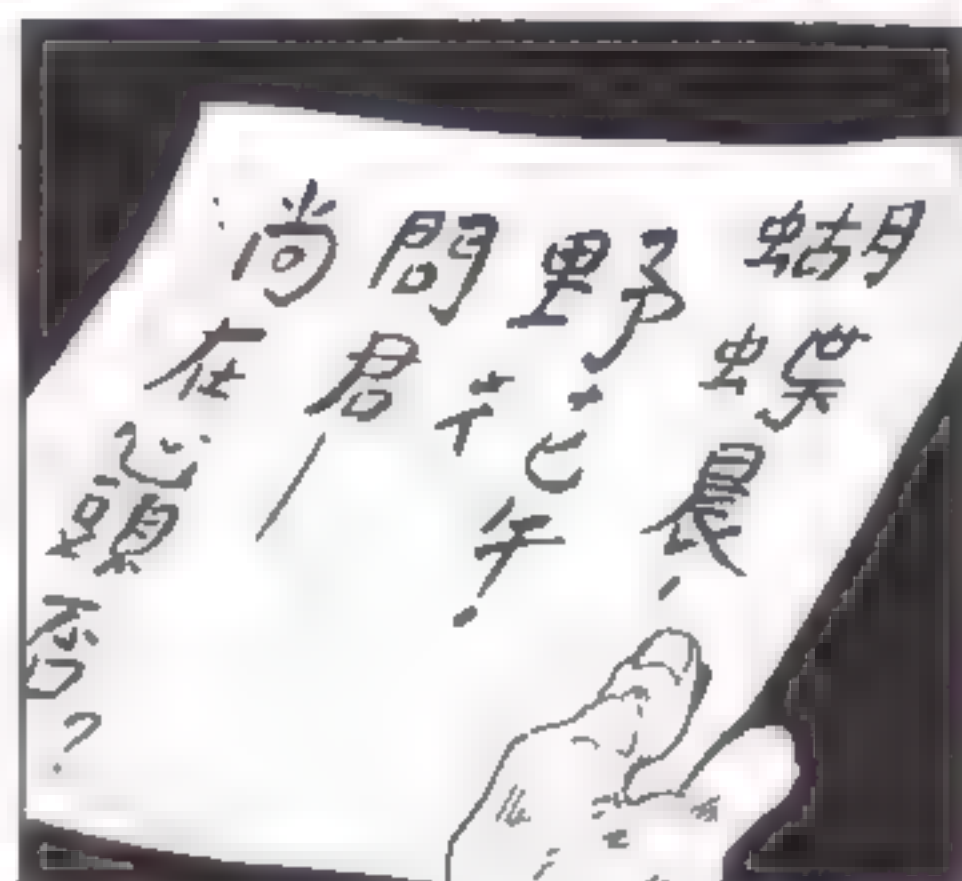 蝴蝶晨,
野花午,
問君—
尚在心頭否?